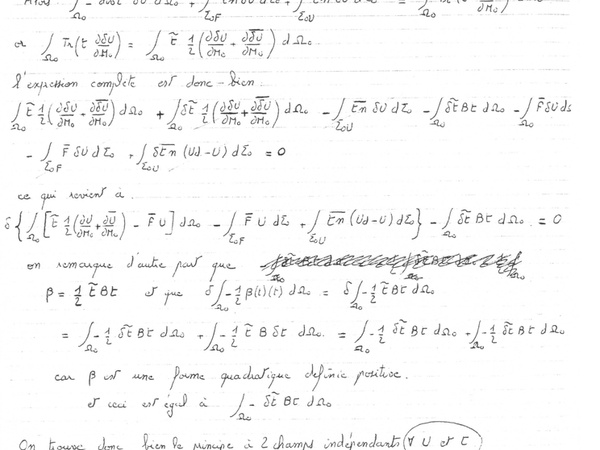 or ∫_Ω₀ Tr(t ∂δU/∂M₀) = ∫_Ω₀ t̃ 1/2 (∂δU/∂M₀ + ∂δU̅/∂M₀) dΩ₀
l'expression complète est donc bien:
∫_Ω₀ t̃ 1/2 (∂δU/∂M₀ + ∂δU̅/∂M₀) dΩ₀ + ∫_Ω₀ δt̃ 1/2 (∂U/∂M₀ + ∂U̅/∂M₀) dΩ₀ - ∫_Σ₀U t̅n̅ δU dΣ₀ - ∫_Ω₀ δt̃ Bt dΩ₀ - ∫_Ω₀ F̅ δU
- ∫_Σ₀F F̅ δU dΣ₀ + ∫_Σ₀U δt̅n̅ (Ud-U) dΣ₀ = 0
ce qui revient à
δ { ∫_Ω₀ [ t̃ 1/2 (∂U/∂M₀ + ∂U̅/∂M₀) - F̅ U ] dΩ₀ - ∫_Σ₀F F̅ U dΣ₀ + ∫_Σ₀U t̅n̅ (Ud-U) dΣ₀ } - ∫_Ω₀ δt̃ Bt dΩ₀ = 0
on remarque d'autre part que
β = 1/2 t̃ Bt et que δ∫_Ω₀ -1/2 β(t)(t) dΩ₀ = δ∫_Ω₀ -1/2 t̃ Bt dΩ₀
= ∫_Ω₀ -1/2 δt̃ Bt dΩ₀ + ∫_Ω₀ -1/2 t̃ B δt dΩ₀ = ∫_Ω₀ -1/2 δt̃ Bt dΩ₀ + ∫_Ω₀ -1/2 δt̃ Bt dΩ₀
car β est une forme quadratique définie positive.
et ceci est égal à ∫_Ω₀ - δt̃ Bt dΩ₀
On trouve donc bien le principe à 2 champs indépendants (∀ U et t)